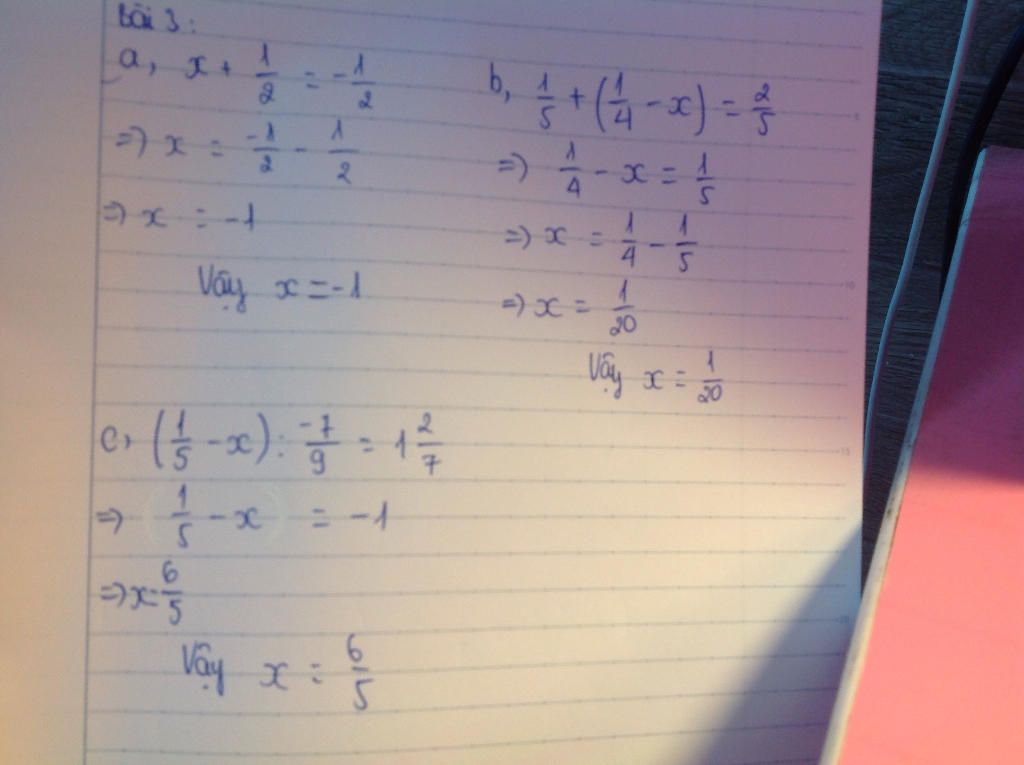 Bài 3:
a, x + 1/2 = -1/2
=> x = -1/2 - 1/2
=> x = -1
Vậy x = -1
b, 1/5 + (1/4 - x) = 2/5
=> 1/4 - x = 1/5
=> x = 1/4 - 1/5
=> x = 1/20
Vậy x = 1/20
c, (1/5 - x) : -7/9 = 1 2/7
=> 1/5 - x = -1
=> x = 6/5
Vậy x = 6/5